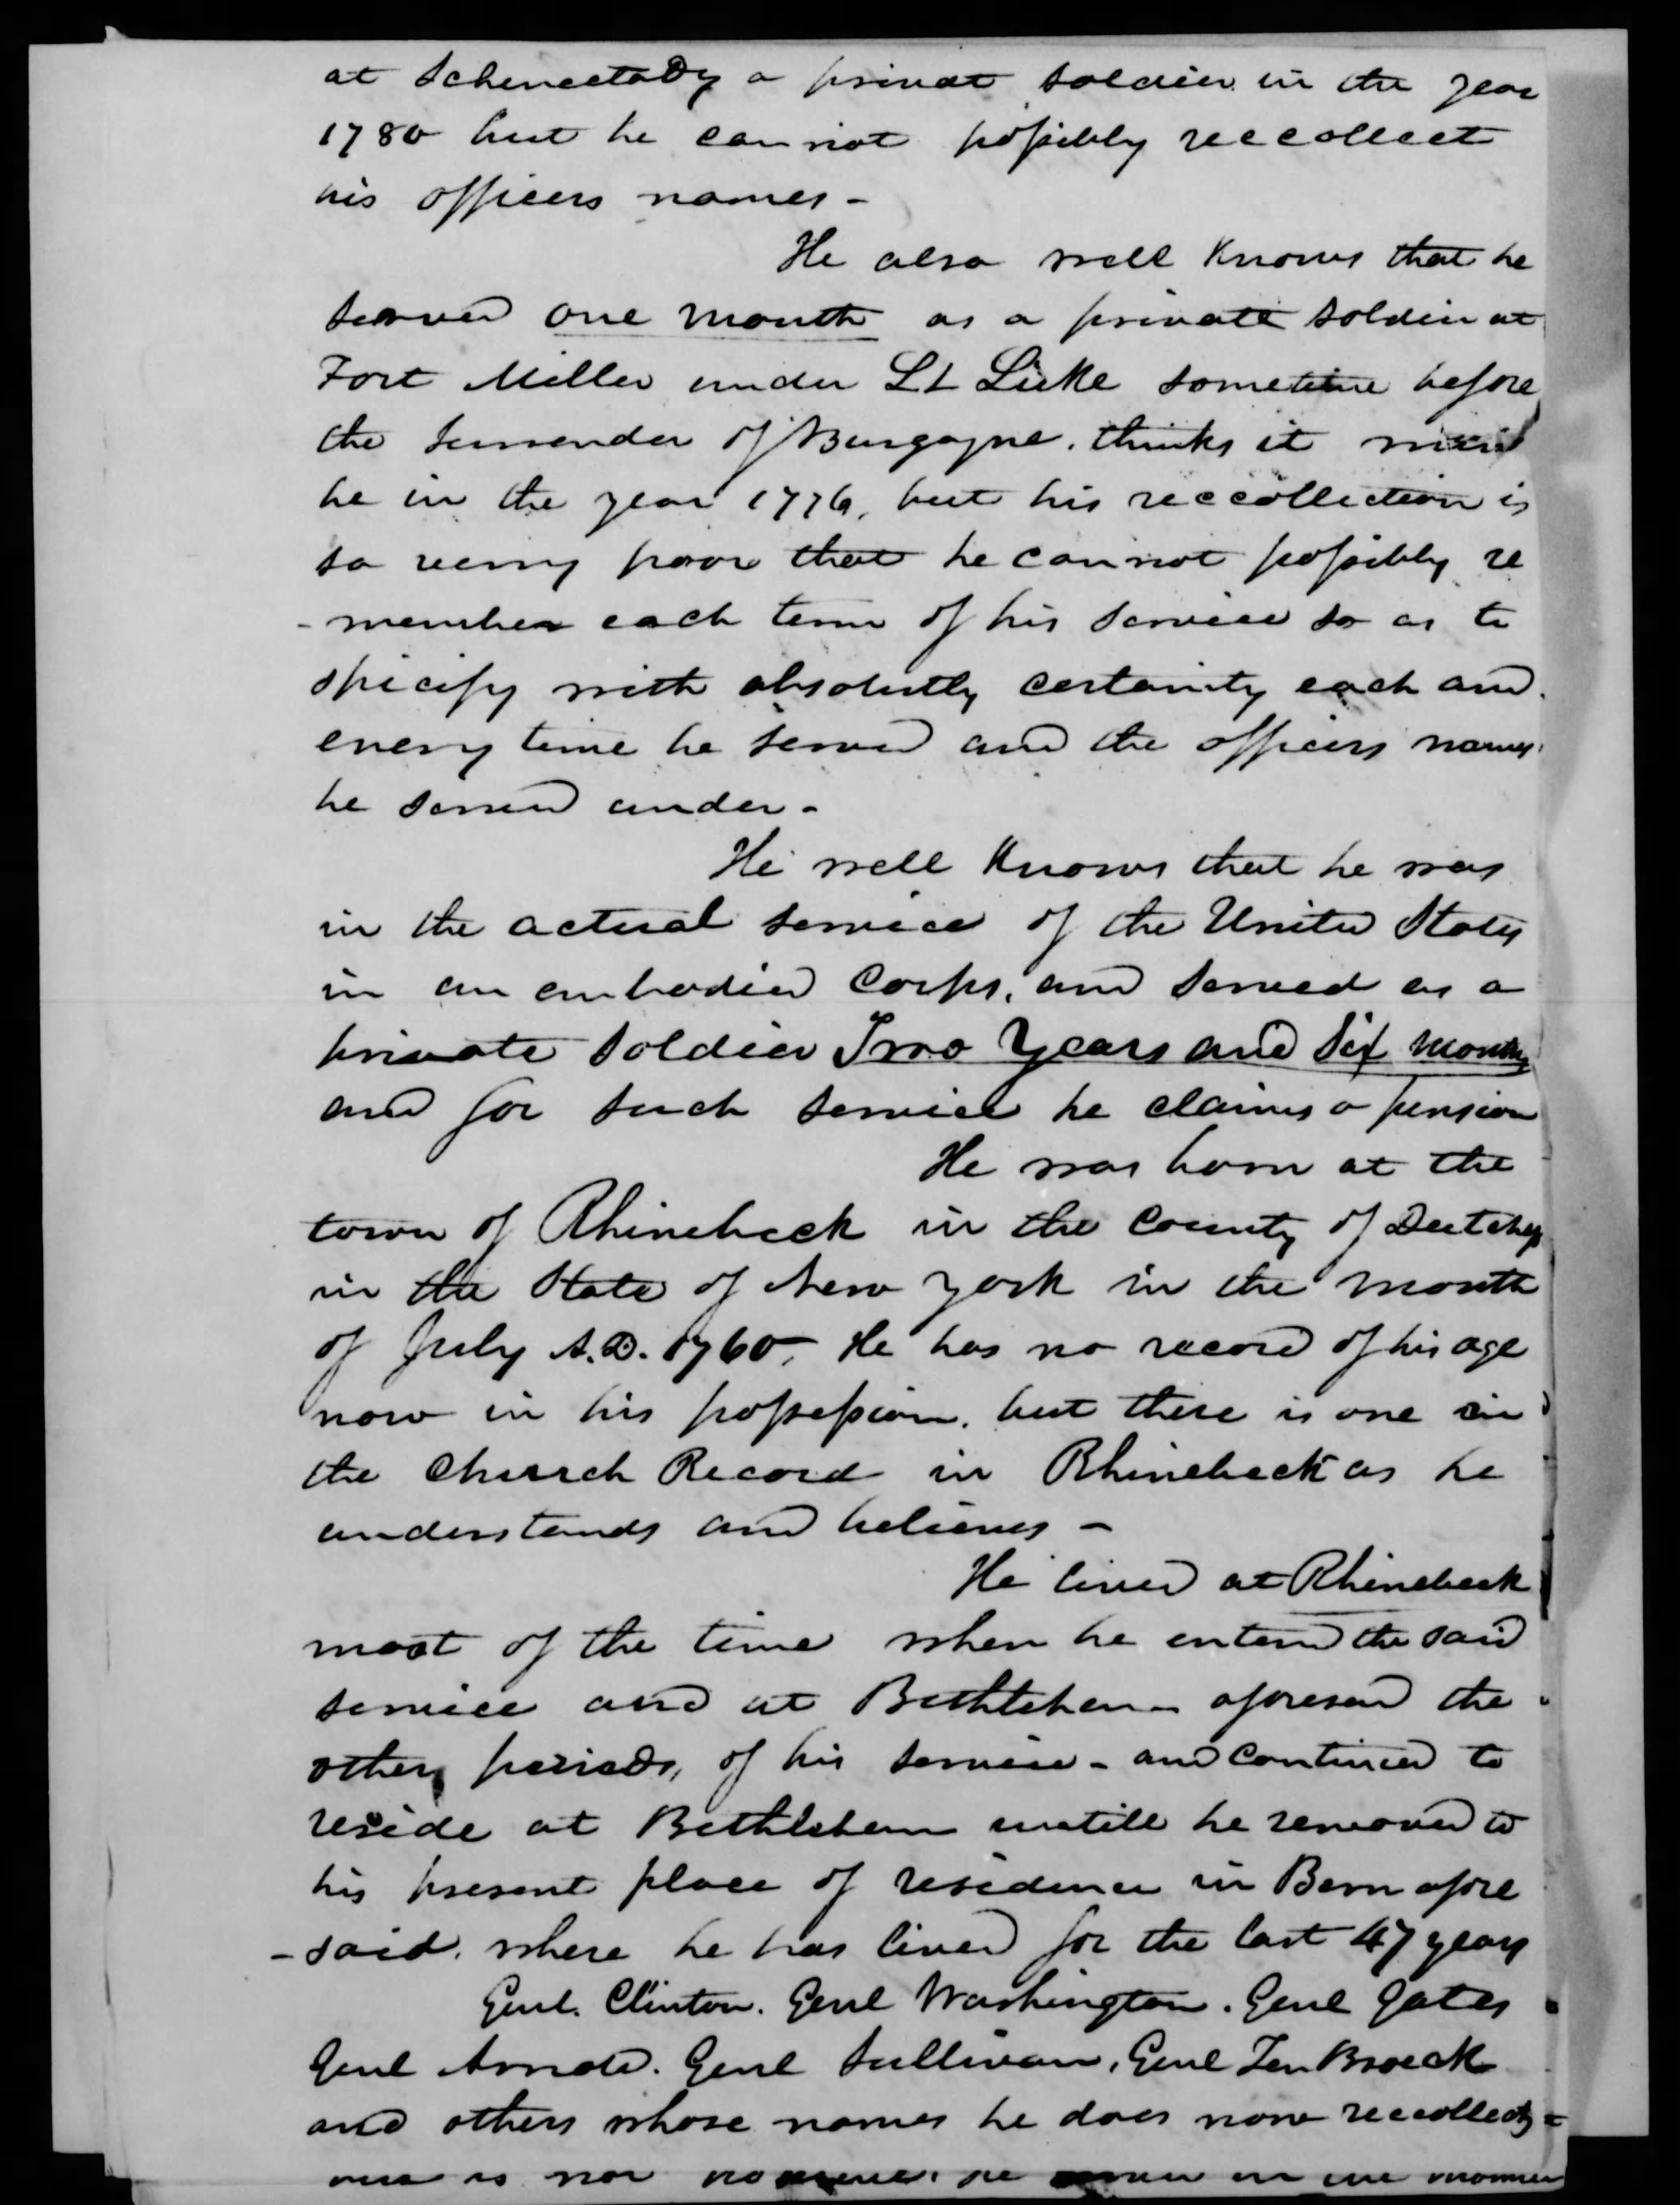 at Schenectady a privat soldier in the year
1780 but he can not possibly reccollect
his officers names -
He also well Knows that he
served one month as a private soldier at
Fort Miller under Lt Luke sometime before
the surrender of Burgoyne. thinks it must
be in the year 1776, but his reccollection is
so veery poor that he can not possibly re
- member each term of his service so as to
specify with absolutly certainty each and
every time he served and the officers names
he served under -
He well Knows that he was
in the actual service of the United States
in an embodied Corps, and served as a
private soldier Two Years and Six months
and for such service he claims a pension
He was born at the
town of Rhinebeck in the County of Dutchess
in the State of New York in the month
of July A.D. 1760. He has no record of his age
now in his possession, but there is one in
the Church Record in Rhinebeck as he
understands and believes -
He lived at Rhinebeck
most of the time when he entered the said
service and at Bethlehem aforesaid the
other periods, of his service - and continued to
reside at Bethlehem untill he removed to
his present place of residence in Bern afore
- said, where he has lived for the last 47 years
Genl. Clinton. Genl Washington. Genl Gates
Genl Arnold. Genl Sullivan, Genl Ten Broeck
and others whose names he does now reccollect
is not he in the manner